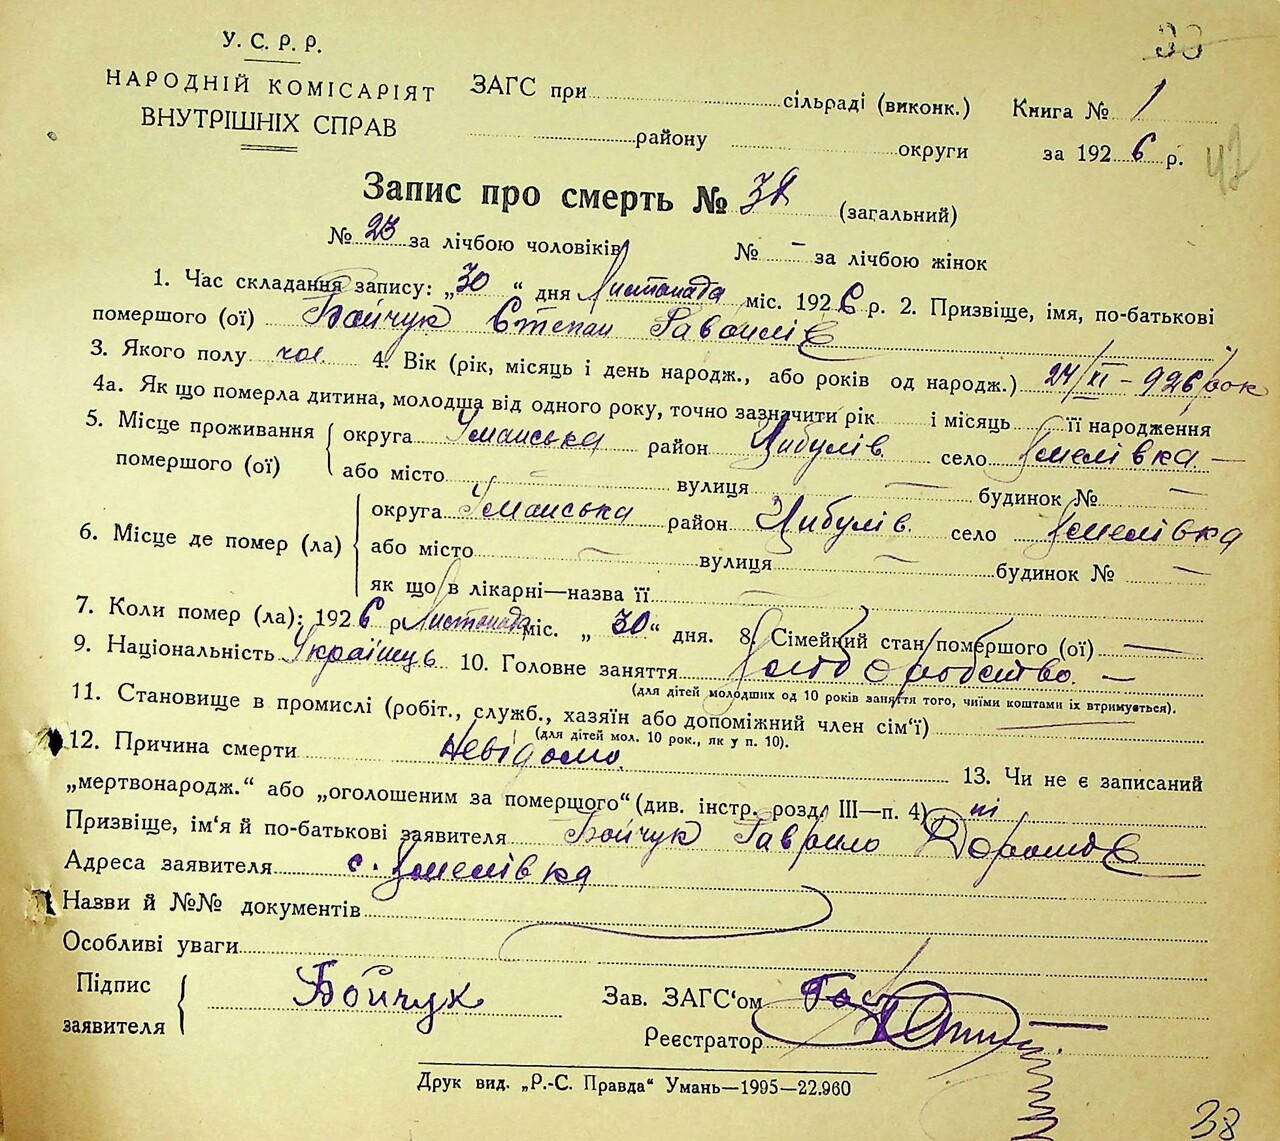 У. С. Р. Р.
НАРОДНІЙ КОМІСАРІЯТ
ВНУТРІШНІХ СПРАВ
ЗАГС при сільраді (виконк.) Книга № 1
району округи за 1926 р.
42
Запис про смерть № 38 (загальний)
№ 23 за лічбою чоловіків № - за лічбою жінок
1. Час складання запису: „30“ дня Листопада міс. 1926 р. 2. Призвіще, імя, по-батькові
помершого (ої) Бойчук Степан Гаврилів
3. Якого полу чол. 4. Вік (рік, місяць і день народж., або років од народж.) 24/XI - 926 рок
4а. Як що померла дитина, молодша від одного року, точно зазначити рік і місяць її народження
5. Місце проживання помершого (ої) округа Уманська район Цибулів село
або місто — вулиця — будинок № —
6. Місце де помер (ла) округа Уманська район Цибулів село
або місто — вулиця — будинок № —
як що в лікарні—назва її —
7. Коли помер (ла): 1926 р. Листопада міс. „30“ дня. 8. Сімейний стан помершого (ої) —
9. Національність Українець 10. Головне заняття Хліборобство. —
(для дітей молодших од 10 років заняття того, чиїми коштами їх втримується).
11. Становище в промислі (робіт., служб., хазяїн або допоміжний член сім‘ї) —
(для дітей мол. 10 рок., як у п. 10).
12. Причина смерти невідомо. 13. Чи не є записаний
„мертвонародж.“ або „оголошеним за померщого“ (див. інстр. розд. III—п. 4) ні
Призвіще, ім‘я й по-батькові заявителя Бойчук Гаврило
Адреса заявителя с.
Назви й №№ документів
Особливі уваги
Підпис заявителя Бойчук Зав. ЗАГС‘ом
Реєстратор
Друк вид. „Р.-С. Правда“ Умань—1995—22.960
38